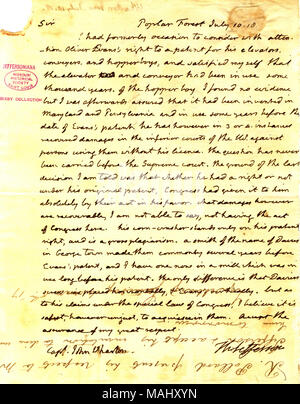 Sir Poplar Forest July 10. 18
I had formerly occasion to consider with atten-
tion Oliver Evans's right to a patent for his elevators,
conveyers, and hopper boys, and satisfied myself that
the elevator and conveyor had been in use some
thousand years. of the hopper boy I found no evidence
but I was afterwards assured that it had been invented in
Maryland and Pensylvania and in use some years before the
date of Evans's patent. he has however in 3 or 4 instances
recovered damages in the inferior courts of the US. against
persons using them without his licence. the question has never
been carried before the Supreme court. the ground of the last
decision I am told was that whether he had a right or not
under his original patent, Congress had given it to him
absolutely by their act in his favor. what damages however
are recoverable, I am not able to say, not having the act
of Congress here. his corn-crusher stands only on his patent
right, and is a gross plagiarism. a smith of the name of Davies
in George town made them commonly several years before
Evans's patent, and I have one now in a mill which was in
use long before his patent. the only difference is that Davies's
was placed horizontally, but as
to his claim under the special law of Congress, I believe it is
safest, however unjust, to acquiesce in them. Accept the
assurance of my great respect.
Capt. John Wharton. Th: Jefferson
JEFFERSONIANA
MISSOURI HISTORICAL SOCIETY
SAINT LOUIS
BIXBY COLLECTION
alamy
alamy
Image ID: MAHXYN
www.alamy.com